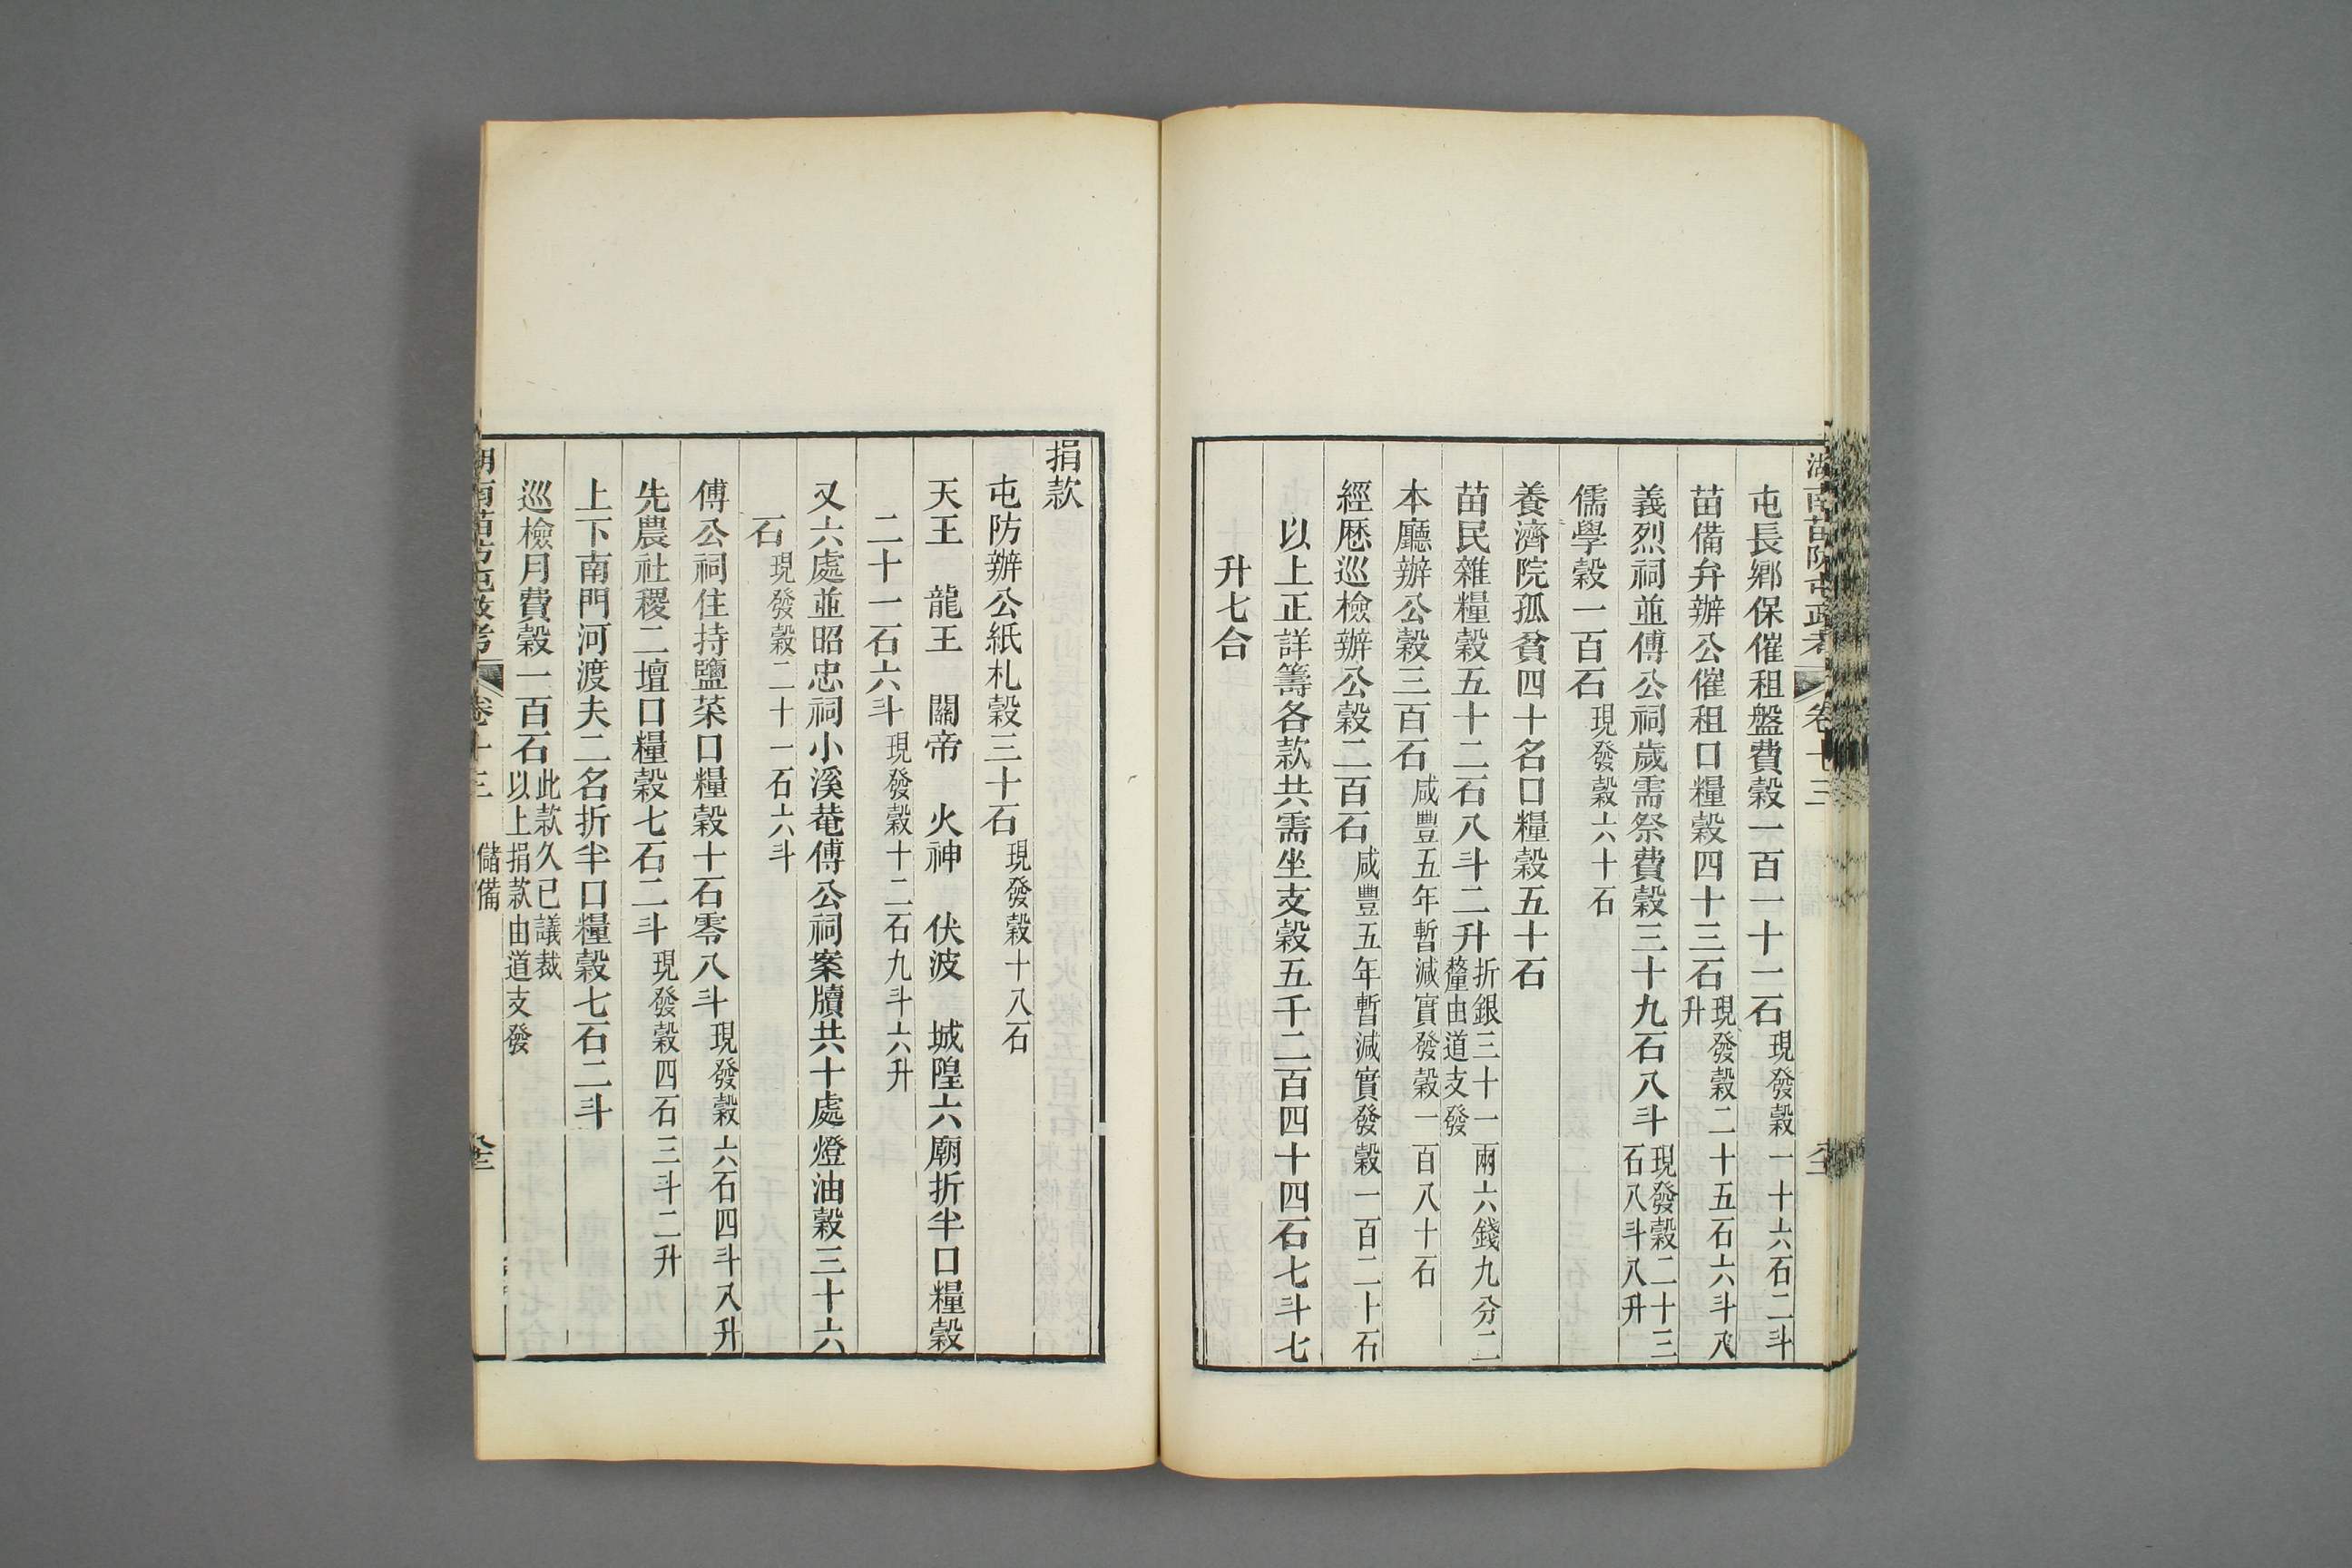 湖南苗防屯政考 卷十三
屯長鄉保催租盤費穀一百一十二石現發穀一十六石二斗
苗備弁辦公催租口糧穀四十三石現發穀二十五石六斗八升
義烈祠並傅公祠歲需祭費穀三十九石八斗現發穀二十三石八斗八升
儒學穀一百石現發穀六十石
養濟院孤貧四十名口糧穀五十石
苗民雜糧穀五十二石八斗二升折銀三十一兩六錢九分二釐由道支發
本廳辦公穀三百石咸豐五年暫減實發穀一百八十石
經厯巡檢辦公穀二百石咸豐五年暫減實發穀一百二十石
以上正詳籌各款共需坐支穀五千二百四十四石七斗七
升七合
捐款
屯防辦公紙札穀三十石現發穀十八石
天王 龍王 關帝 火神 伏波 城隍六廟折半口糧穀
二十一石六斗現發穀十二石九斗六升
又六處並昭忠祠小溪菴傅公祠案牘共十處燈油穀三十六
石現發穀二十一石六斗
傅公祠住持鹽菜口糧穀十石零八斗現發穀六石四斗八升
先農社稷二壇口糧穀七石二斗現發穀四石三斗二升
上下南門河渡夫二名折半口糧穀七石二斗
巡檢月費穀一百石此款久已議裁以上捐款由道支發
湖南苗防屯政考 卷十三 儲備